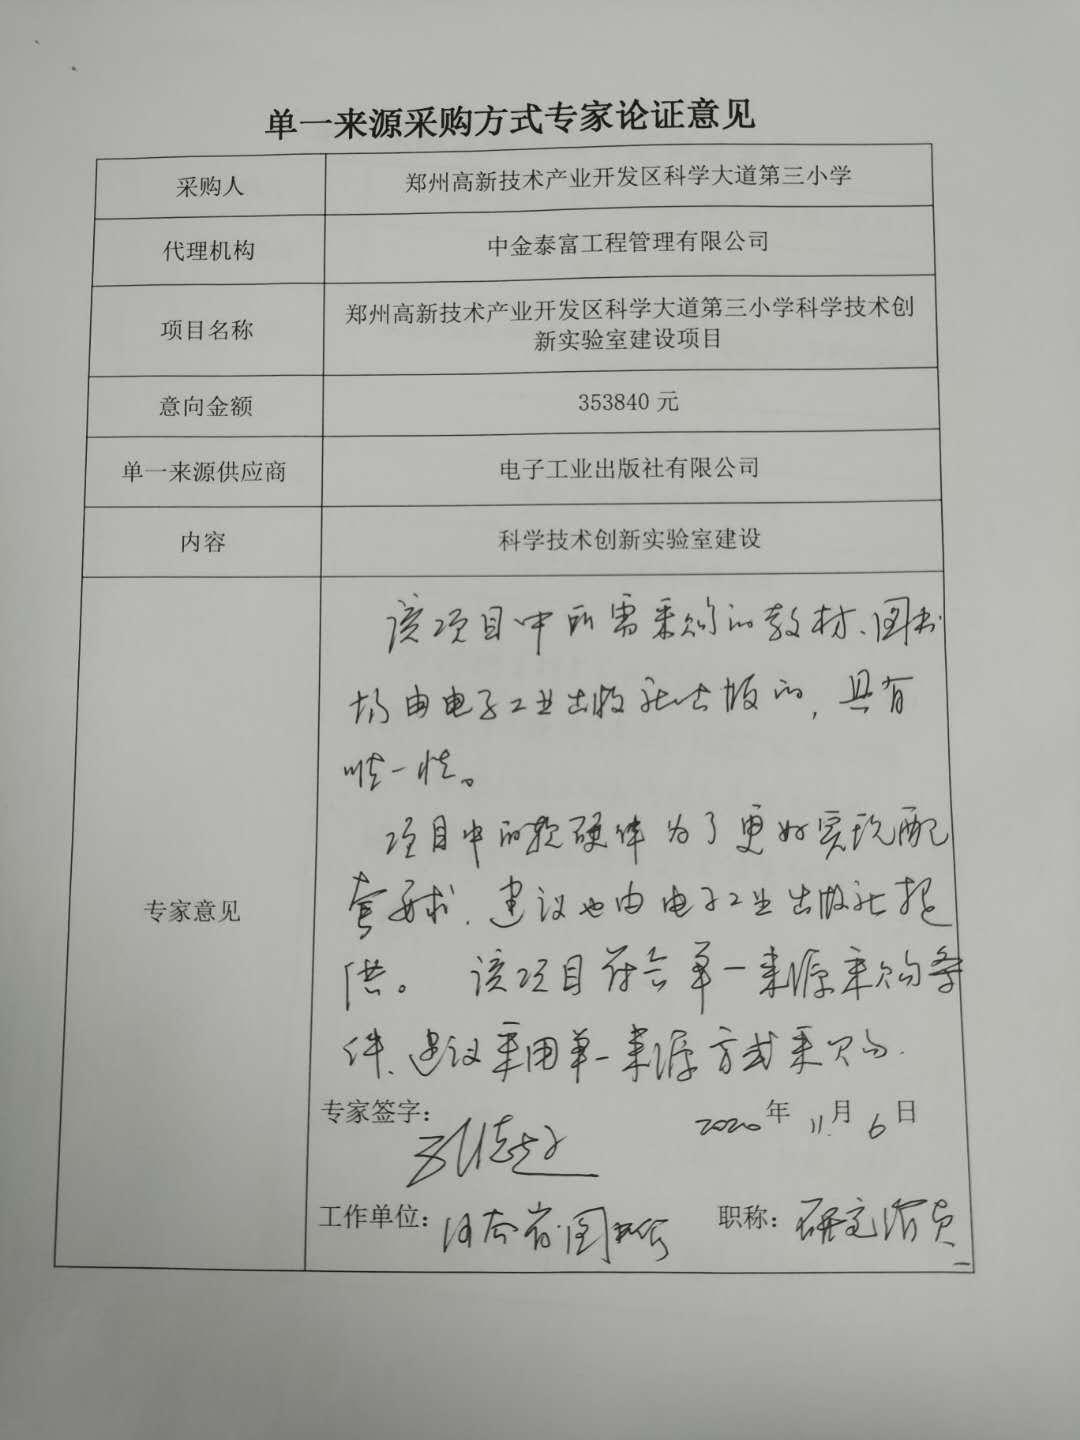 单一来源采购方式专家论证意见
采购人 郑州高新技术产业开发区科学大道第三小学
代理机构 中金泰富工程管理有限公司
项目名称 郑州高新技术产业开发区科学大道第三小学科学技术创
新实验室建设项目
意向金额 353840 元
单一来源供应商 电子工业出版社有限公司
内容 科学技术创新实验室建设
专家意见
该项目中所需采购的教材、图书
均由电子工业出版社出版的,具有
唯一性。
项目中的软硬件为了更好实现配
套要求,建议也由电子工业出版社提
供。 该项目符合单一来源采购条
件,建议采用单一来源方式采购.
专家签字: 2020年 11月 6日
工作单位: 河南省图书馆 职称: 研究馆员